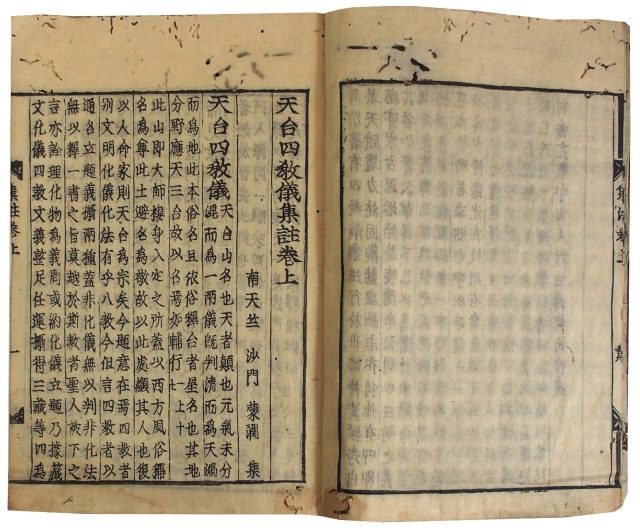 天台四教儀集註卷上
南天竺 沙門 蒙潤 集
天台四教儀 天台山名也天者顛也元氣未分
混而爲一兩儀既判清而爲天濁
而爲地此本名且依俗釋台者星名也其地
分野應天三台故以名焉 輔行一上十
此山即大師棲身入定之所蓋以西方風俗稱
名爲尊此土避名爲敬故以此處顯其人也後
以人命家則天台爲宗矣今題意在焉四教者
別文明化儀化法有乎八教今但言四教者以
通名立題義攝兩種蓋非化儀無以判非化法
無以釋一書之旨莫越於斯教者聖人被下之
言亦詮理化物爲義問或約化儀立題乃據籤
文化儀四教文義整足任運攝得三藏等四爲
集註卷上
一